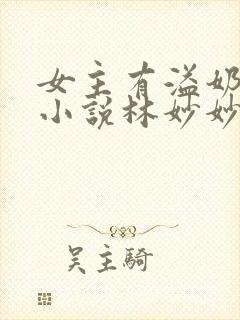 女主有溢奶
小说林妙妙
吴主骑